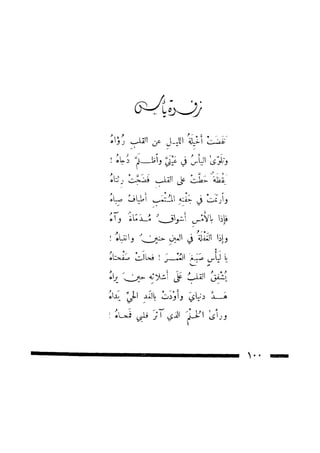 زفرة يأس
نفضت أخيلة الليل عن القلب رؤاه
وتعزى اليأس في عيني وأظلم دجاه !
يقظة حطت على القلب فضجت رئتاه
وارتمت في جفنه المتعب أطياف صباه
فإذا بالأمس أشواق مدماة وآه
وإذا الغفلة في العين حنين وانتباه !
يا ليأس صبغ العمر ! فحالت صفحتاه
يشفق القلب على أشلائه حين يراه
هد دنياي وأودت بالغد الحي يداه
ورأى الحلم الذي آثر قلبي فمحاه !
١٠٠